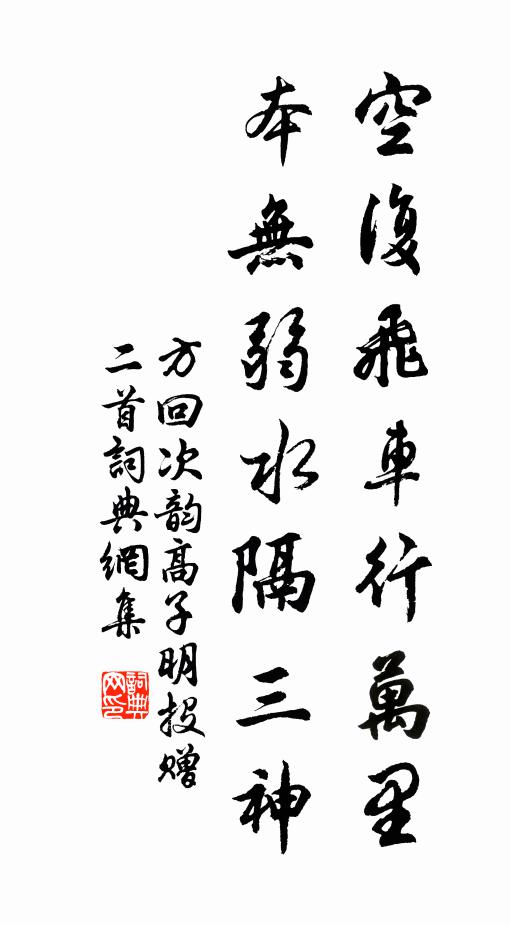 空復飛車行萬里
本無弱水隔三神
方回次韵高子明投赠
二首詞典網集
詞典网印